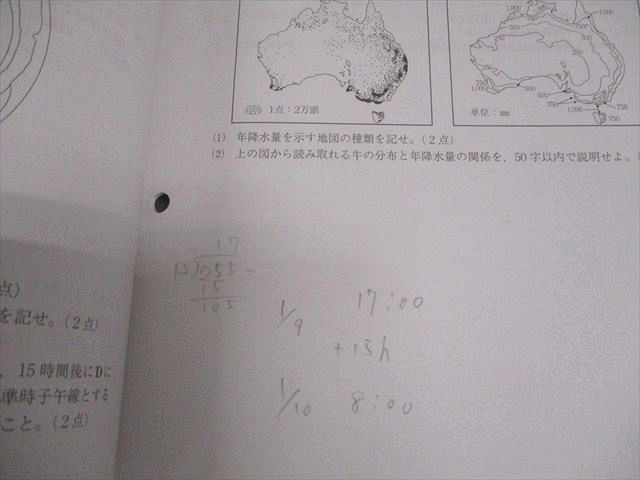 1,000
500
750
250
500
750
1,000
500
750
500
1,000
750
1点：2万頭
単位：mm
(1) 年降水量を示す地図の種類を記せ。(2点)
(2) 上の図から読み取れる牛の分布と年降水量の関係を，50字以内で説明せよ。(
点)
を記せ。(2点)
，15時間後にDに
準時子午線とする
こと。(2点)
17
15)255
15
105
1/9 17:00
+15h
1/10 8:00